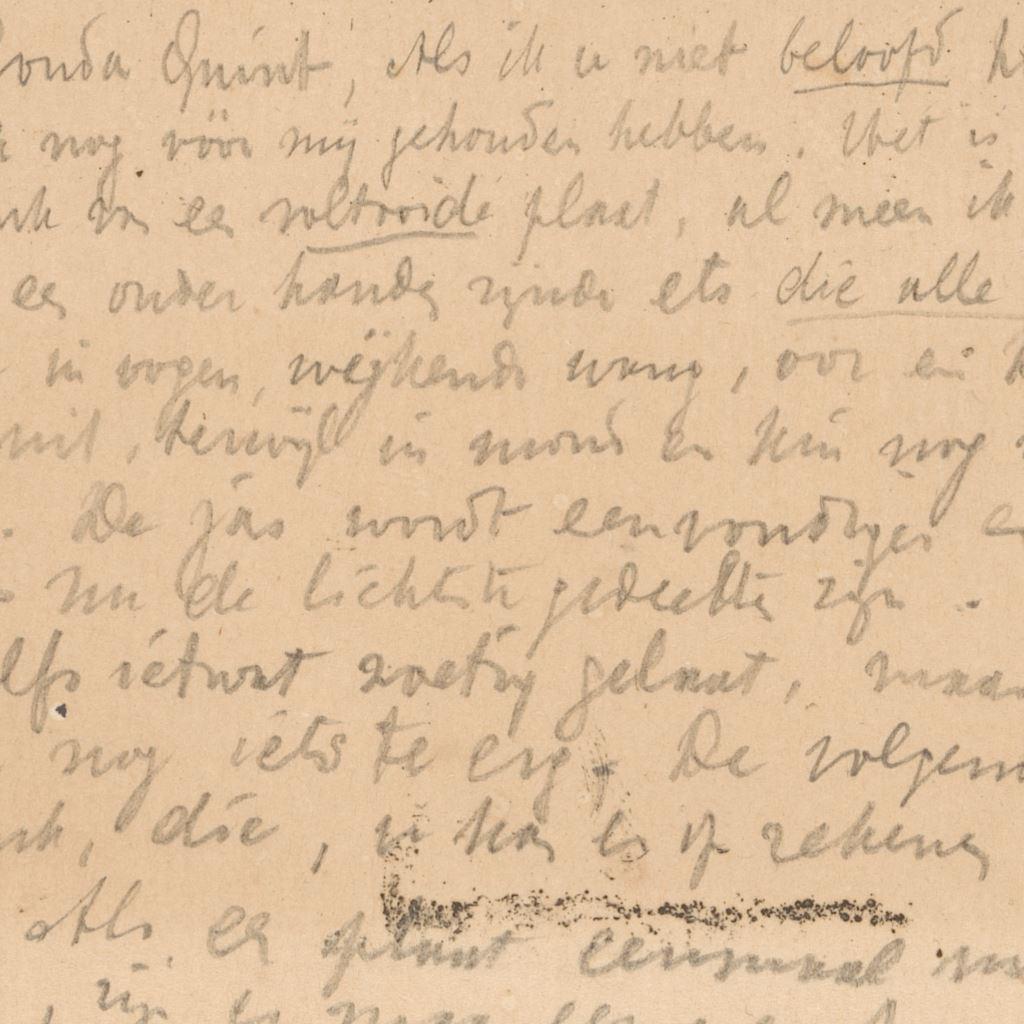 Gonda Quint, Als ik u niet beloofd h
nog vóór mij gehouden hebben. Het is
ik in een voltooide plaat, al meen ik
een onder handen zijnde ets die alle
in oogen, wijkende wang, oor en
uit, terwijl in mond en kin nog
. De jas wordt eenvoudiger e
nu de lichtste gedeelten zijn.
elfs ietwat zoetig gelaat, maar
nog iets te erg. De volgen
ik, die, u kan er op rekenen
Als een plaat eenmaal
zijn